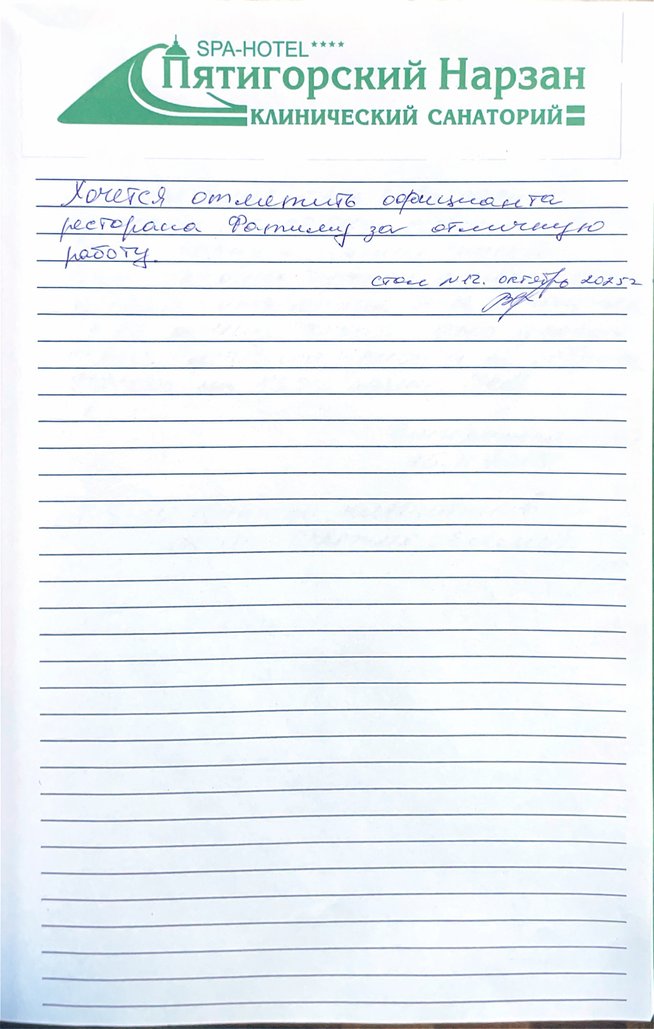 SPA-HOTEL****
Пятигорский Нарзан
КЛИНИЧЕСКИЙ САНАТОРИЙ
Хочется отметить официанта
ресторана Фатиму за отличную
работу.
стол №12. октябрь 2025г